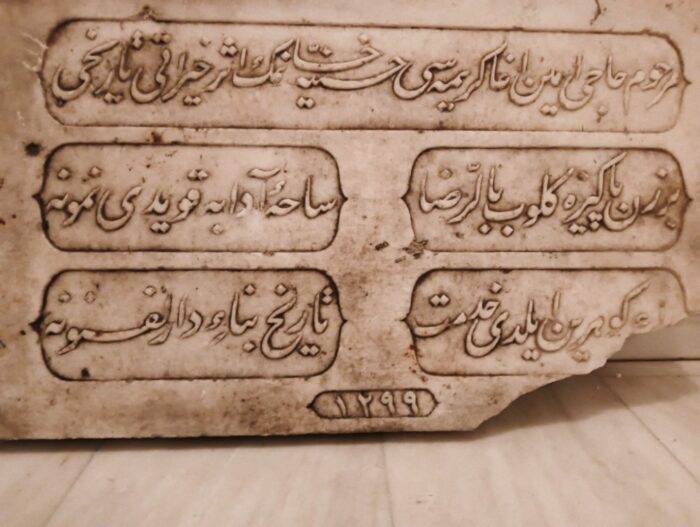 مرحوم حاجی امین اغا کریمه سی خانمك اثر خیراتی تاریخی
بر زن پاکیزه کلوب بالرّضا ساحهٔ آدابه قویدی نمونه
کوهرین ایلدی خدمت تاریخ بناءِ دارلفنونه
١٢٩٩